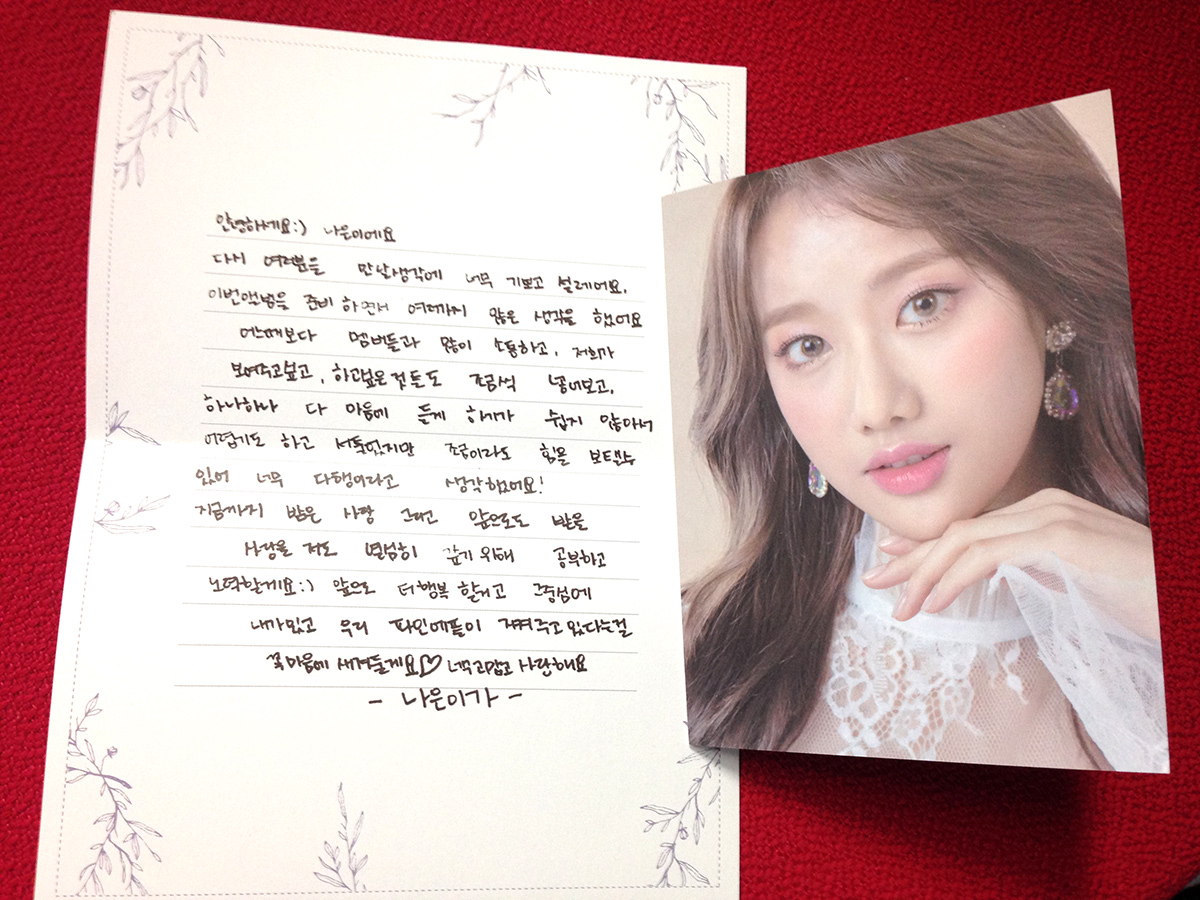 안녕하세요:) 나은이에요
다시 여러분을 만날생각에 너무 기쁘고 설레어요.
이번앨범을 준비하면서 여러가지 많은 생각을 했어요
어느때보다 멤버들과 많이 소통하고, 저희가
보여주고싶고, 하고싶은것들도 조금씩 넣어보고,
하나하나 다 마음에 들게 하기가 쉽지 않아서
어렵기도 하고 서툴렀지만 조금이라도 힘을 보탤수
있어 너무 다행이라고 생각했어요!
지금까지 받은 사랑 그리고 앞으로도 받을
사랑을 저도 열심히 갚기 위해 공부하고
노력할게요:) 앞으로 더 행복할거고 그중심에
내가있고 우리 파인에플이 지켜주고있다는걸
꼭 마음에 새겨둘게요♡ 너무고맙고 사랑해요
- 나은이가 -